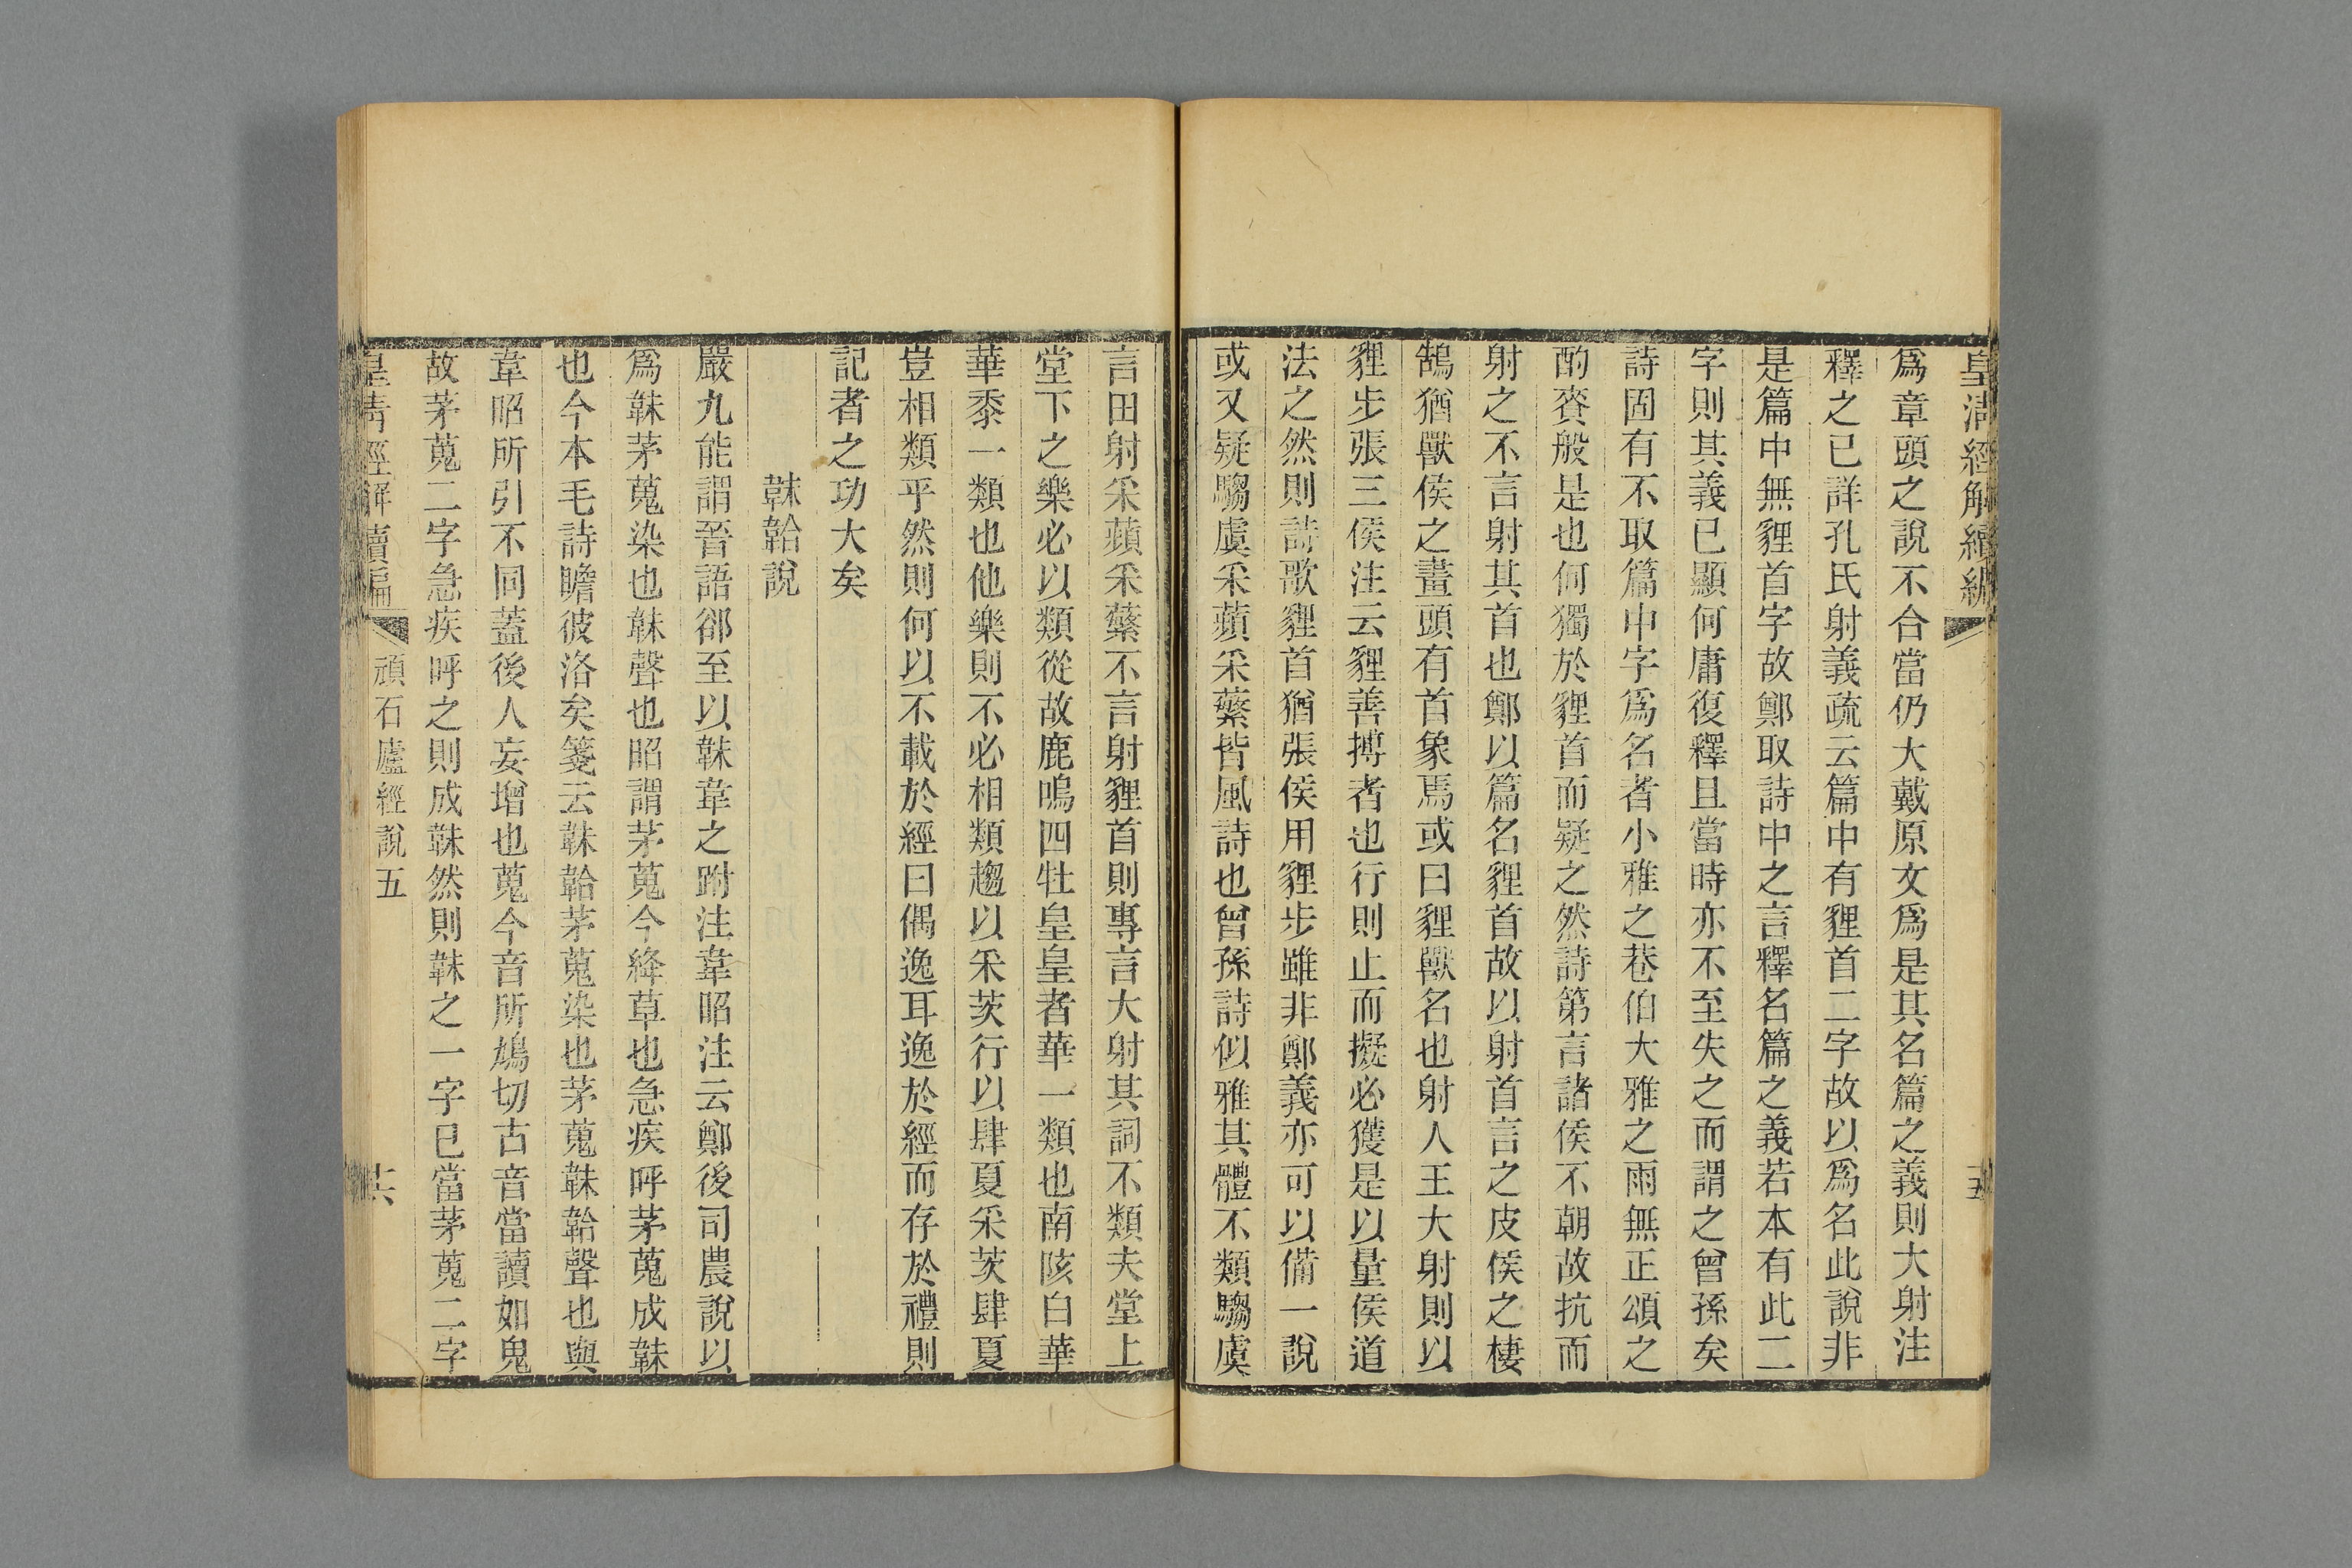 皇清經解續編
爲章頭之說不合當仍大戴原文爲是其名篇之義則大射注
釋之已詳孔氏射義疏云篇中有貍首二字故以爲名此說非
是篇中無貍首字故鄭取詩中之言釋名篇之義若本有此二
字則其義已顯何庸復釋且當時亦不至失之而謂之曾孫矣
詩固有不取篇中字爲名者小雅之巷伯大雅之雨無正頌之
酌賚般是也何獨於貍首而疑之然詩第言諸侯不朝故抗而
射之不言射其首也鄭以篇名貍首故以射首言之皮侯之棲
鵠猶獸侯之畫頭有首象焉或曰貍獸名也射人王大射則以
貍步張三侯注云貍善搏者也行則止而擬必獲是以量侯道
法之然則詩歌貍首猶張侯用貍步雖非鄭義亦可以備一說
或又疑騶虞采蘋采蘩皆風詩也曾孫詩似雅其體不類騶虞
言田射采蘋采蘩不言射貍首則專言大射其詞不類夫堂上
堂下之樂必以類從故鹿鳴四牡皇皇者華一類也南陔白華
華黍一類也他樂則不必相類趨以采茨行以肆夏采茨肆夏
豈相類乎然則何以不載於經曰偶逸耳逸於經而存於禮則
記者之功大矣
韎韐說
嚴九能謂晉語郤至以韎韋之跗注韋昭注云鄭後司農說以
爲韎茅蒐染也韎聲也昭謂茅蒐今絳草也急疾呼茅蒐成韎
也今本毛詩瞻彼洛矣箋云韎韐茅蒐染也茅蒐韎韐聲也與
韋昭所引不同蓋後人妄增也蒐今音所鳩切古音當讀如鬼
故茅蒐二字急疾呼之則成韎然則韎之一字已當茅蒐二字
皇清經解續編
頑石廬經說五
共